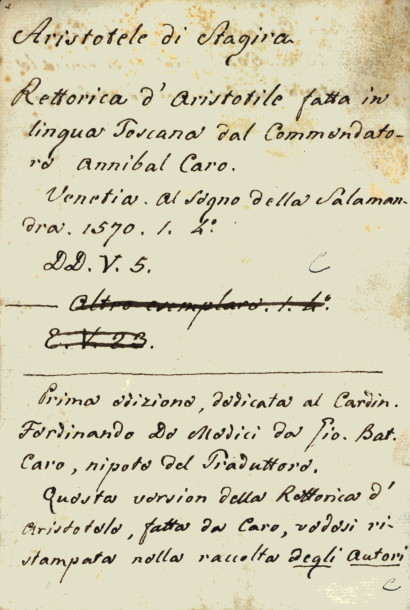 Aristotele di Stagira
Rettorica d' Aristotile fatta in
lingua Toscana dal Commendato-
re Annibal Caro.
Venetia. Al Segno della Salaman-
dra. 1570. 1. 4.°
DD. V. 5.
C
Altro esemplare. 1. 4.°
E. V. 23.
Prima edizione, dedicata al Cardin.
Ferdinando De Medici da Gio. Bat.
Caro, nipote del Traduttore.
Questa version della Rettorica d'
Aristotele, fatta da Caro, vedesi ri-
stampata nella raccolta degli Autori
C